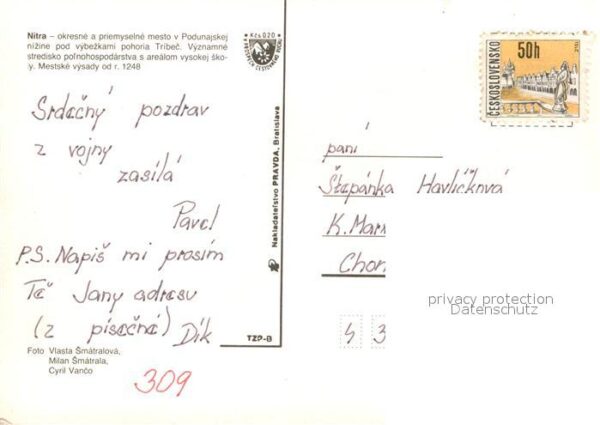 Nitra – okresné a priemyselné mesto v Podunajskej
nížine pod výbežkami pohoria Tribeč. Významné
stredisko poľnohospodárstva s areálom vysokej ško-
ly. Mestské výsady od r. 1248
Kčs 0,20
50h
ČESKOSLOVENSKO
Srdečný pozdrav
z vojny
zasílá
Pavel
P.S. Napiš mi prosím
Tě Jany adresu
(z písečné) Dík
Nakladateľstvo PRAVDA, Bratislava
TZP-B
Foto Vlasta Šmátralová,
Milan Šmátrala,
Cyril Vančo
309
paní
Štepánka Havlíčková
K. Marx
Chom
privacy protection
Datenschutz
4 3